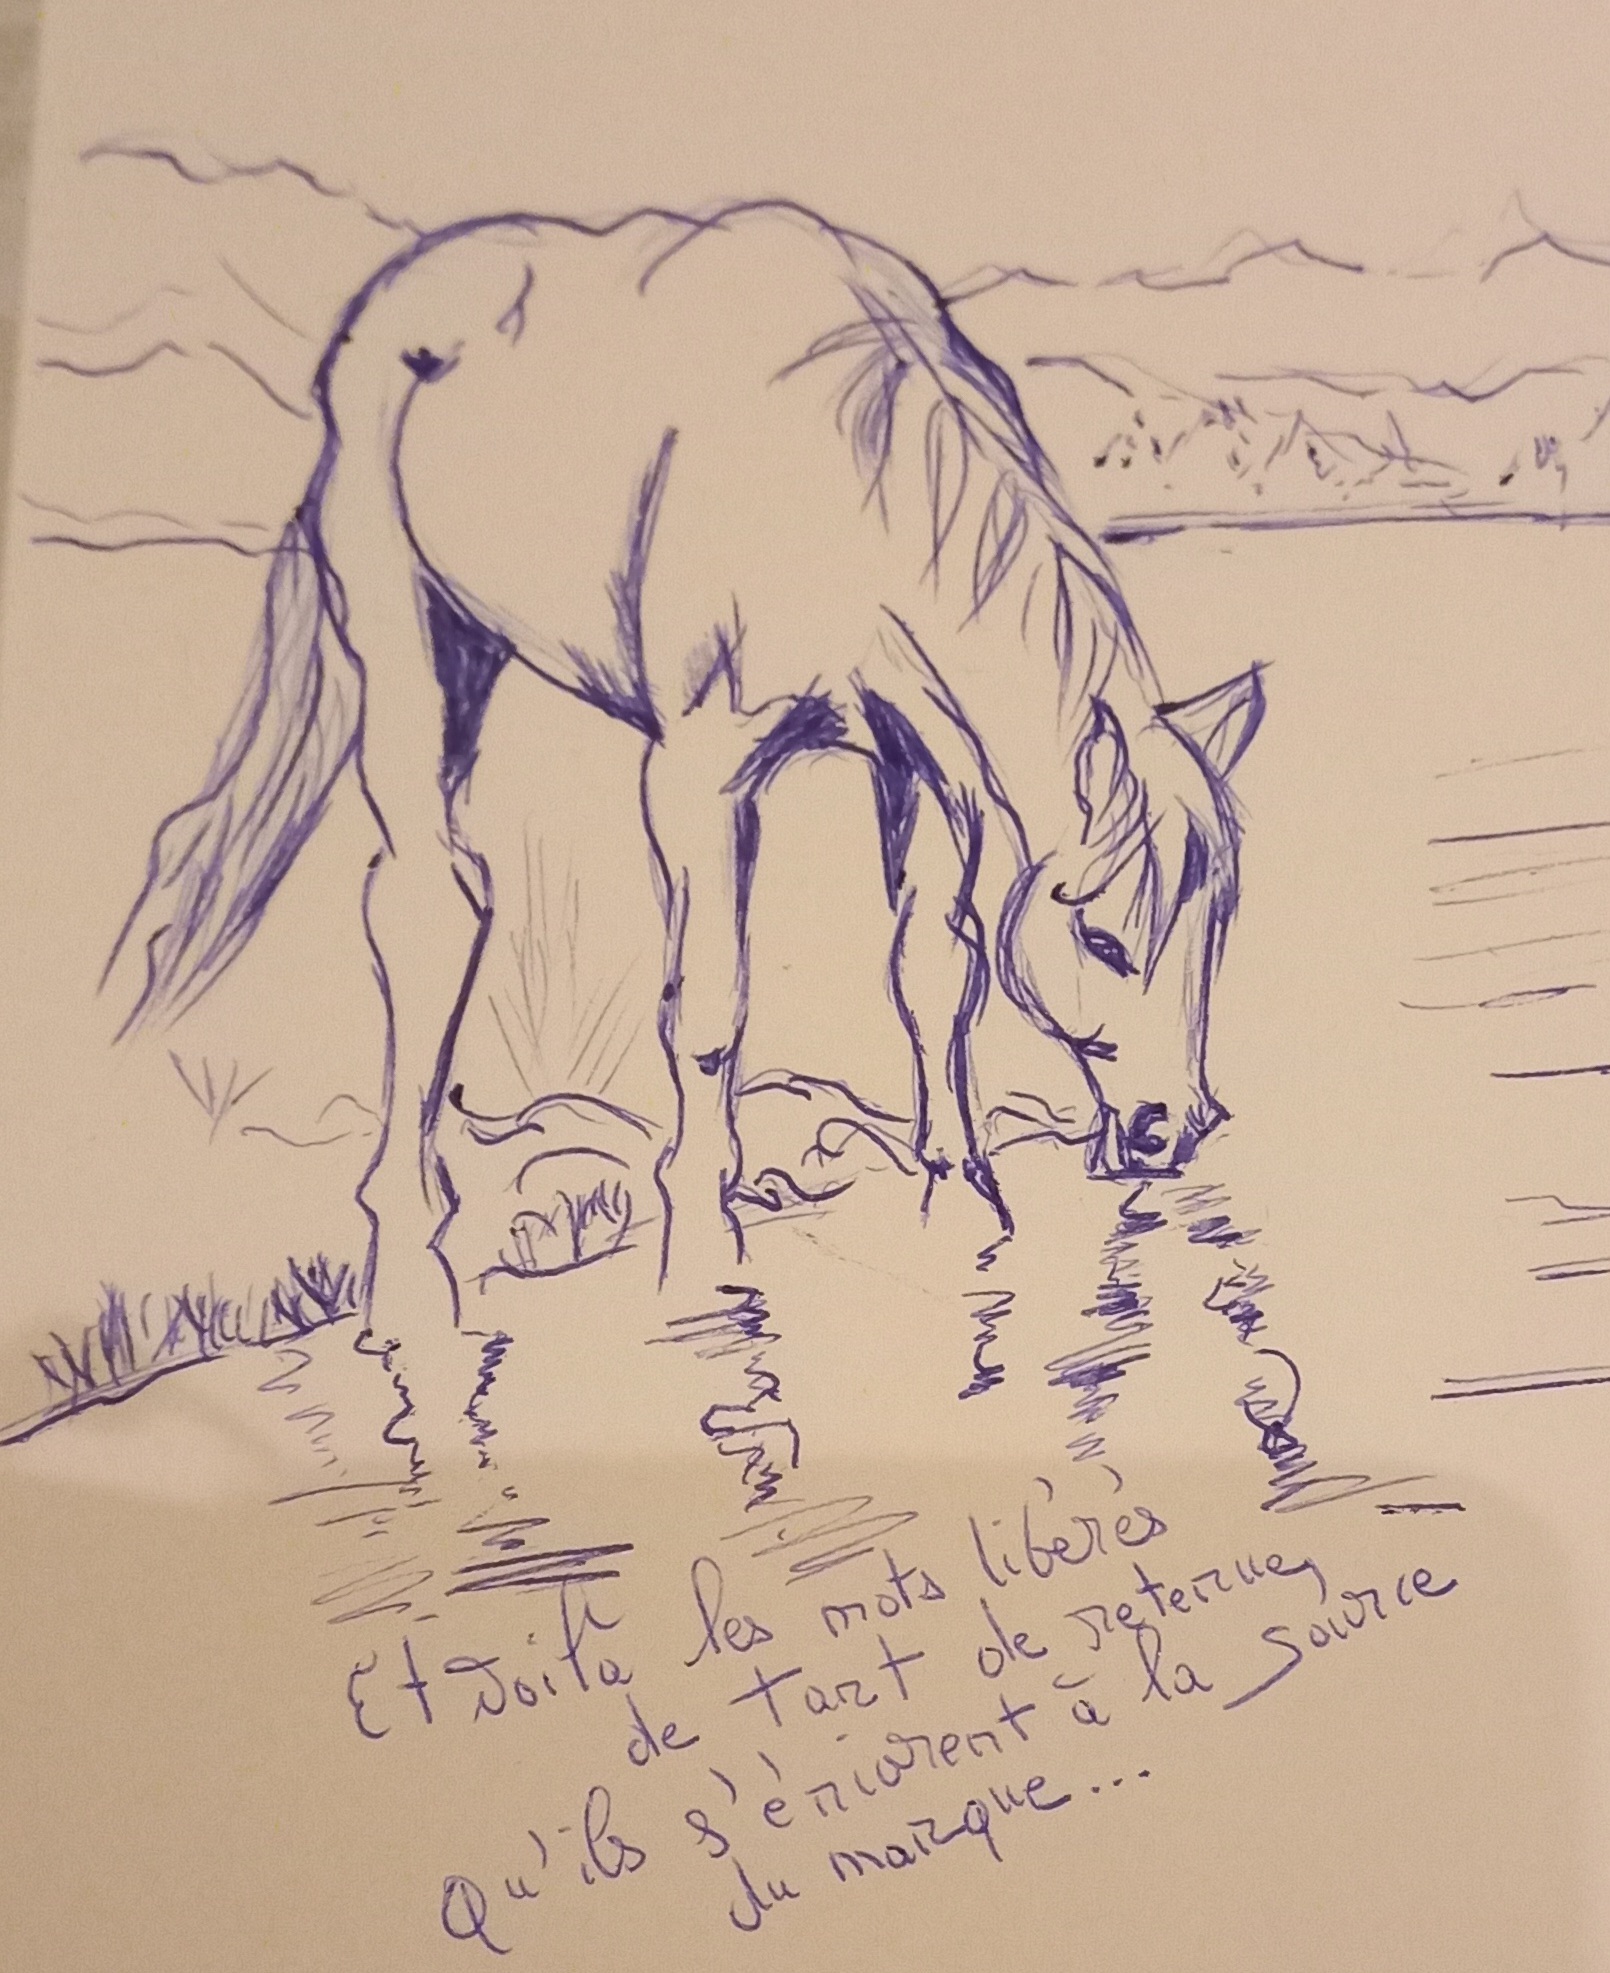 Et voilà les mots libérés
de tant de retenue,
Qu'ils s'énivrent à la source
du manque...